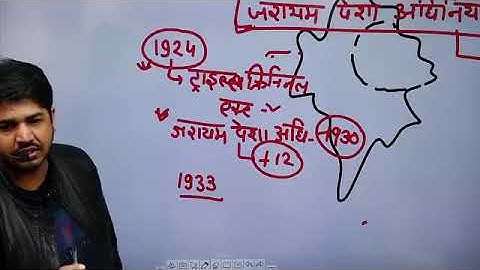 जरायम पेशा अधिनिय
1924
ट्राइब्स क्रिमिनल
एक्ट
जरायम पेशा अधि- 1930
+12
1933